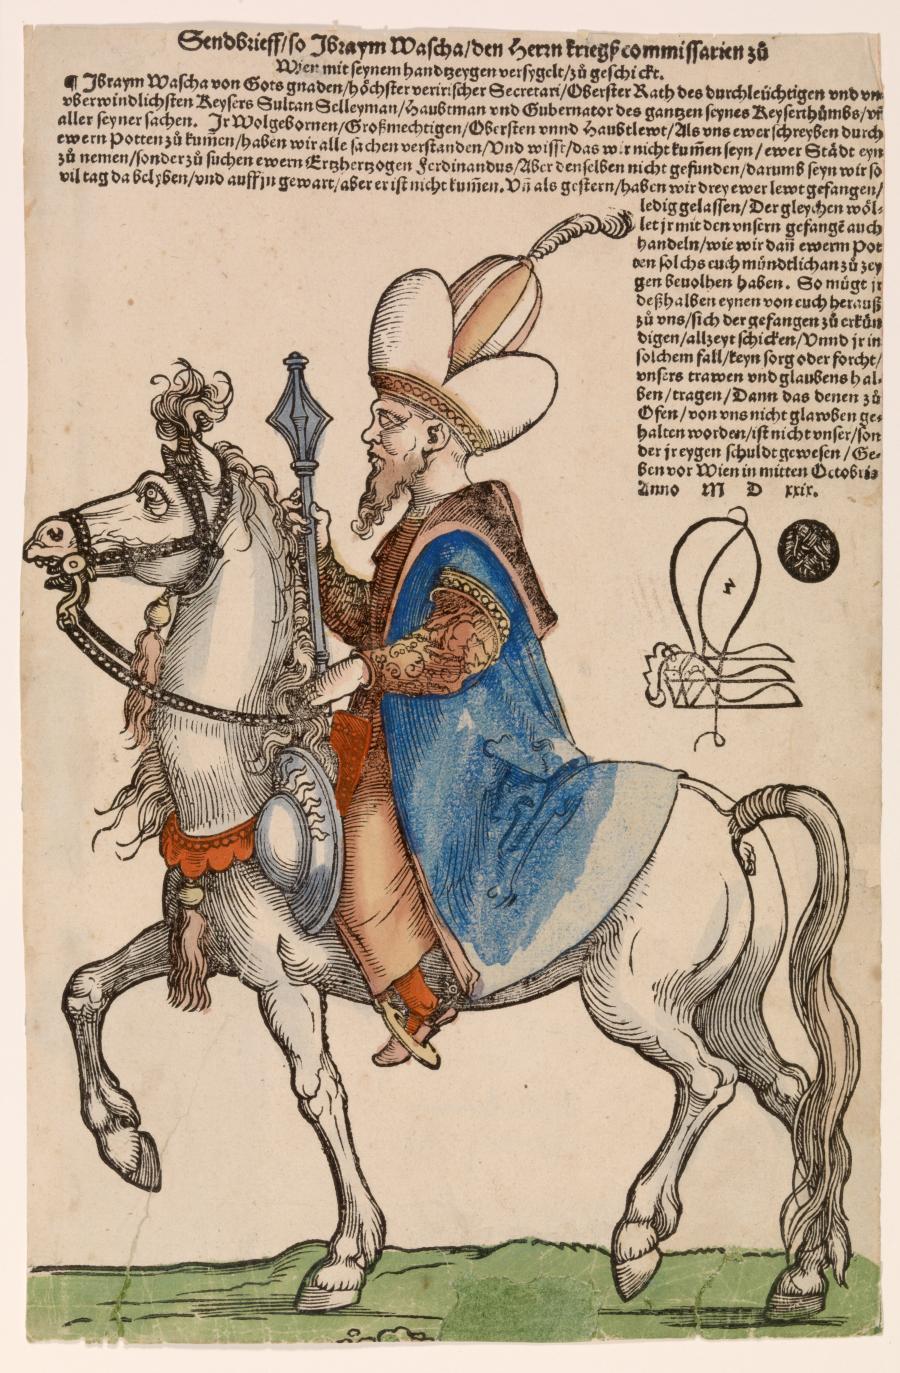 Sendbrieff/so Jbraym Wascha/den Herrn kriegßcommissarien zů
Wien mit seynem handtzeygen versygelt/zů geschickt.
¶ Jbraym Wascha von Gots gnaden/höchster veririscher Secretari/Oberster Rath des durchleüchtigen vnd vn
vberwindlichsten Keysers Sultan Selleyman/Haubtman vnd Gubernator des gantzen seynes Keyserthůmbs/vñ
aller seyner sachen. Jr Wolgebornen/Großmechtigen/Obersten vnnd Haubtlewt/Als vns ewer schreyben durch
ewern Potten zů kumen/haben wir alle sachen verstanden/Vnd wisst/das wir nicht kum̃en seyn/ewer Städt eyn
zů nemen/sonder zů suchen ewern Ertzhertzogen Ferdinandus/Aber denselben nicht gefunden/darumb seyn wir so
vil tag da belyben/vnd auff jn gewart/aber er ist nicht kum̃en. Vñ als gestern/haben wir drey ewer lewt gefangen/
ledig gelassen/Der gleychen wöl⸗
let jr mit den vnsern gefangẽ auch
handeln/wie wir dañ ewerm Pot
ten solchs euch mündtlich an zů zey
gen beuolhen haben. So mügt jr
deßhalben eynen von euch herauß
zů vns/sich der gefangen zů erkün
digen/allzeyt schicken/Vnnd jr in
solchem fall/keyn sorg oder forcht/
vnsers trawen vnd glaubens hal⸗
ben/tragen/Dann das denen zů
Ofen/von vns nicht glawben ge⸗
halten worden/ist nicht vnser/son
der jr eygen schuldt gewesen/Ge⸗
ben vor Wien in mitten Octobris
Anno M D xxix.